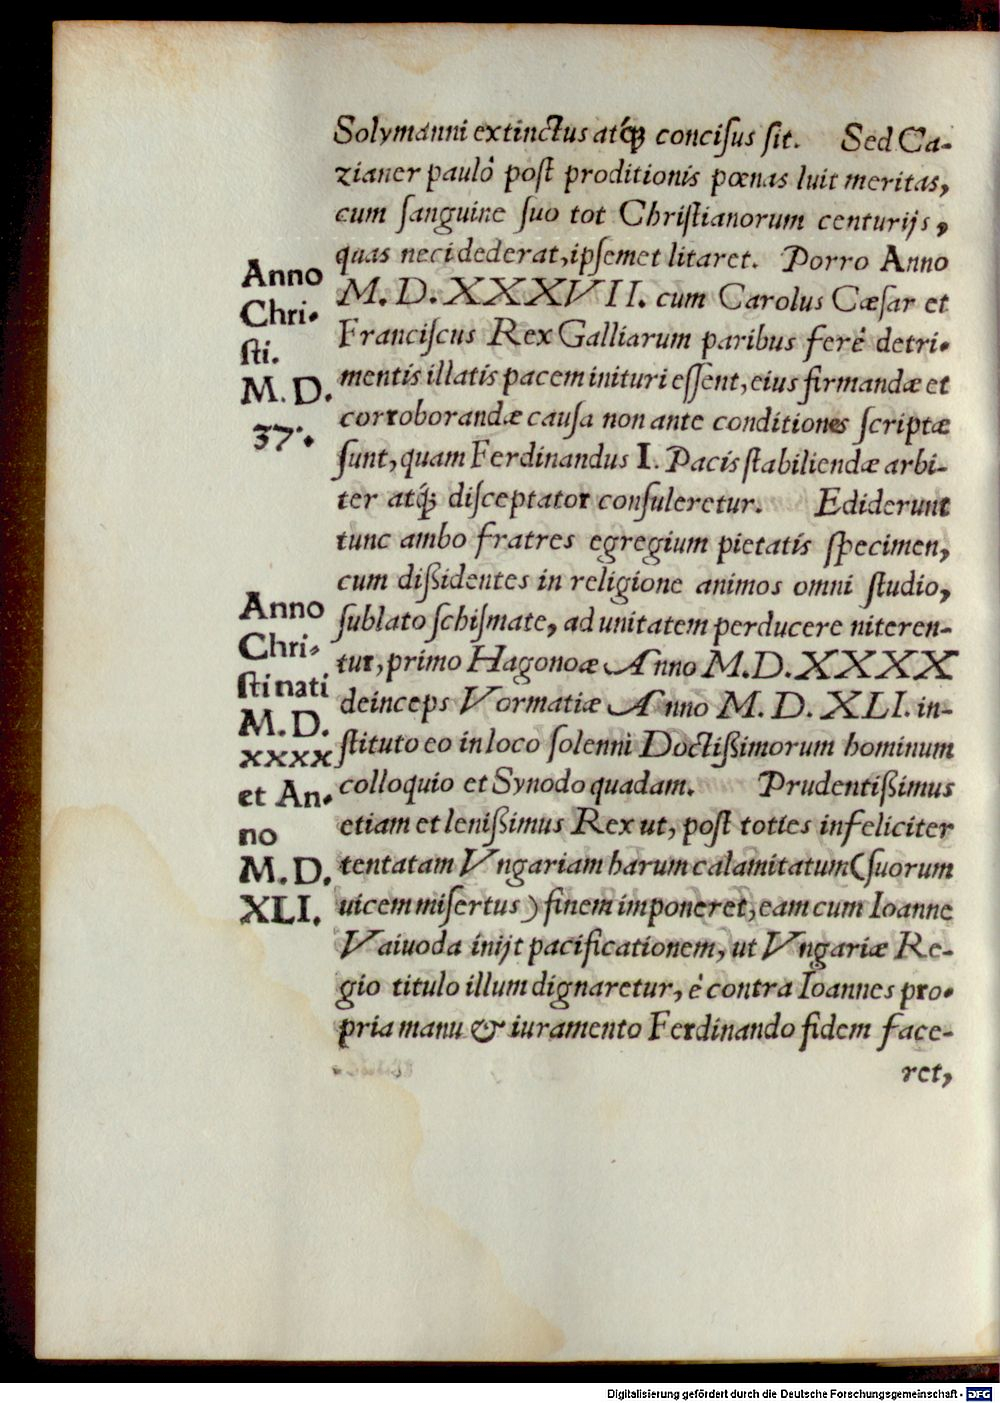 Solymanni extinctus atq́ꝫ conciſus ſit. Sed Ca-
zianer paulò poſt proditionis pœnas luit meritas,
cum ſanguine ſuo tot Chriſtianorum centurijs,
quas neci dederat, ipſemet litaret. Porro Anno
M. D. XXXVII. cum Carolus Cæſar et
Franciſcus Rex Galliarum paribus ferè detri-
mentis illatis pacem inituri eſſent, eius firmandæ et
corroborandæ cauſa non ante conditiones ſcriptæ
ſunt, quam Ferdinandus I. Pacis ſtabiliendæ arbi-
ter atq́ꝫ diſceptator conſuleretur. Ediderunt
tunc ambo fratres egregium pietatis ſpecimen,
cum dißidentes in religione animos omni ſtudio,
ſublato ſchiſmate, ad unitatem perducere niteren-
tur, primo Hagonoæ Anno M.D.XXXX
deinceps Vormatiæ Anno M. D. XLI. in-
ſtituto eo in loco ſolenni Doctißimorum hominum
colloquio et Synodo quadam. Prudentißimus
etiam et lenißimus Rex ut, poſt toties infeliciter
tentatam Vngariam harum calamitatum (ſuorum
uicem miſertus) finem imponeret, eam cum Ioanne
Vaiuoda inijt pacificationem, ut Vngariæ Re-
gio titulo illum dignaretur, è contra Ioannes pro-
pria manu & iuramento Ferdinando fidem face-
ret,
Anno
Chri-
ſti.
M. D.
37.
Anno
Chri-
ſti nati
M. D.
XXXX
et An-
no
M. D.
XLI.
Digitalisierung gefördert durch die Deutsche Forschungsgemeinschaft - DFG